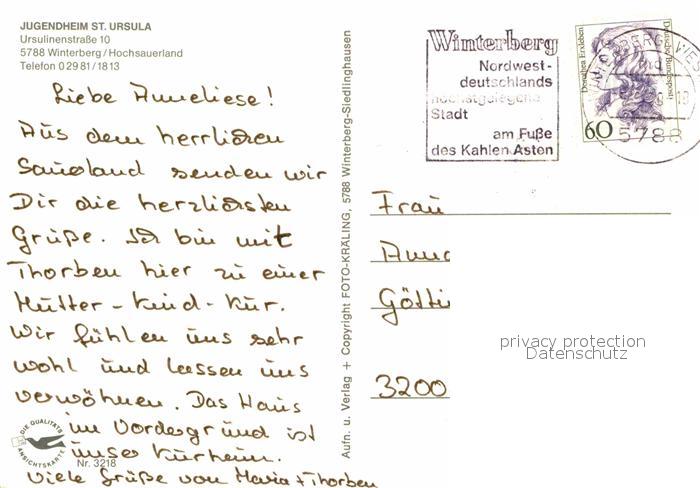 JUGENDHEIM ST. URSULA
Ursulinenstraße 10
5788 Winterberg / Hochsauerland
Telefon 0 29 81 / 18 13
Liebe Anneliese!
Aus dem herrlichen
Sauerland senden wir
Dir die herzlichsten
Grüße. Ich bin mit
Thorben hier zu einer
Mutter-Kind-Kur.
Wir fühlen uns sehr
wohl und lassen uns
verwöhnen. Das Haus
im Vordergrund ist
unser Kurheim.
Viele Grüße von Maria + Thorben
DIE QUALITÄTS
ANSICHTSKARTE
Nr. 3218
Aufn. u. Verlag + Copyright FOTO-KRÄLING, 5788 Winterberg-Siedlinghausen
Winterberg
Nordwest-
deutschlands
höchstgelegene
Stadt
am Fuße
des Kahlen Asten
Dorothea Erxleben
Deutsche Bundespost
60
WINTERBERG, WEST
5788
Frau
Anne
Götti
3200
privacy protection
Datenschutz